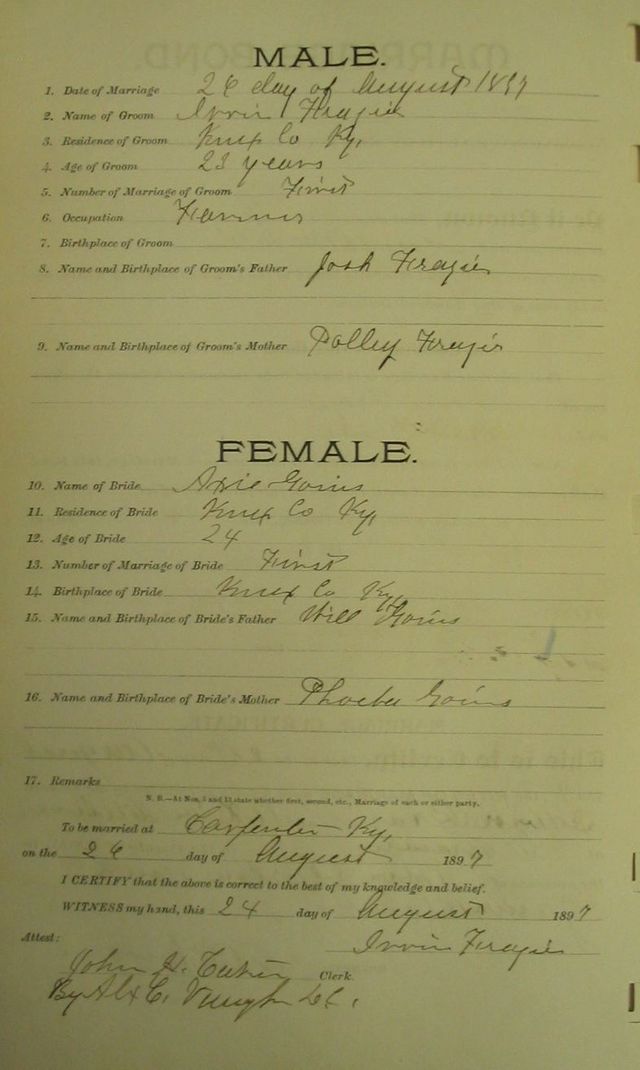 MALE.
1. Date of Marriage 26 day of August 1897
2. Name of Groom Irvin Frazier
3. Residence of Groom Knox Co Ky,
4. Age of Groom 23 years
5. Number of Marriage of Groom First
6. Occupation Farmer
7. Birthplace of Groom
8. Name and Birthplace of Groom's Father Josh Frazier
9. Name and Birthplace of Groom's Mother Polley Frazier
FEMALE.
10. Name of Bride Goins
11. Residence of Bride Knox Co Ky,
12. Age of Bride 24
13. Number of Marriage of Bride First
14. Birthplace of Bride Knox Co Ky,
15. Name and Birthplace of Bride's Father Will Goins
16. Name and Birthplace of Bride's Mother Phoeba Goins
17. Remarks
N. B.—At Nos. 5 and 13 state whether first, second, etc., Marriage of each or either party.
To be married at Carpenter Ky,
on the 26 day of August 1897
I CERTIFY that the above is correct to the best of my knowledge and belief.
WITNESS my hand, this 24 day of August 1897
Irvin Frazier
Attest:
John H. Clerk.
By Alx C. D.C.